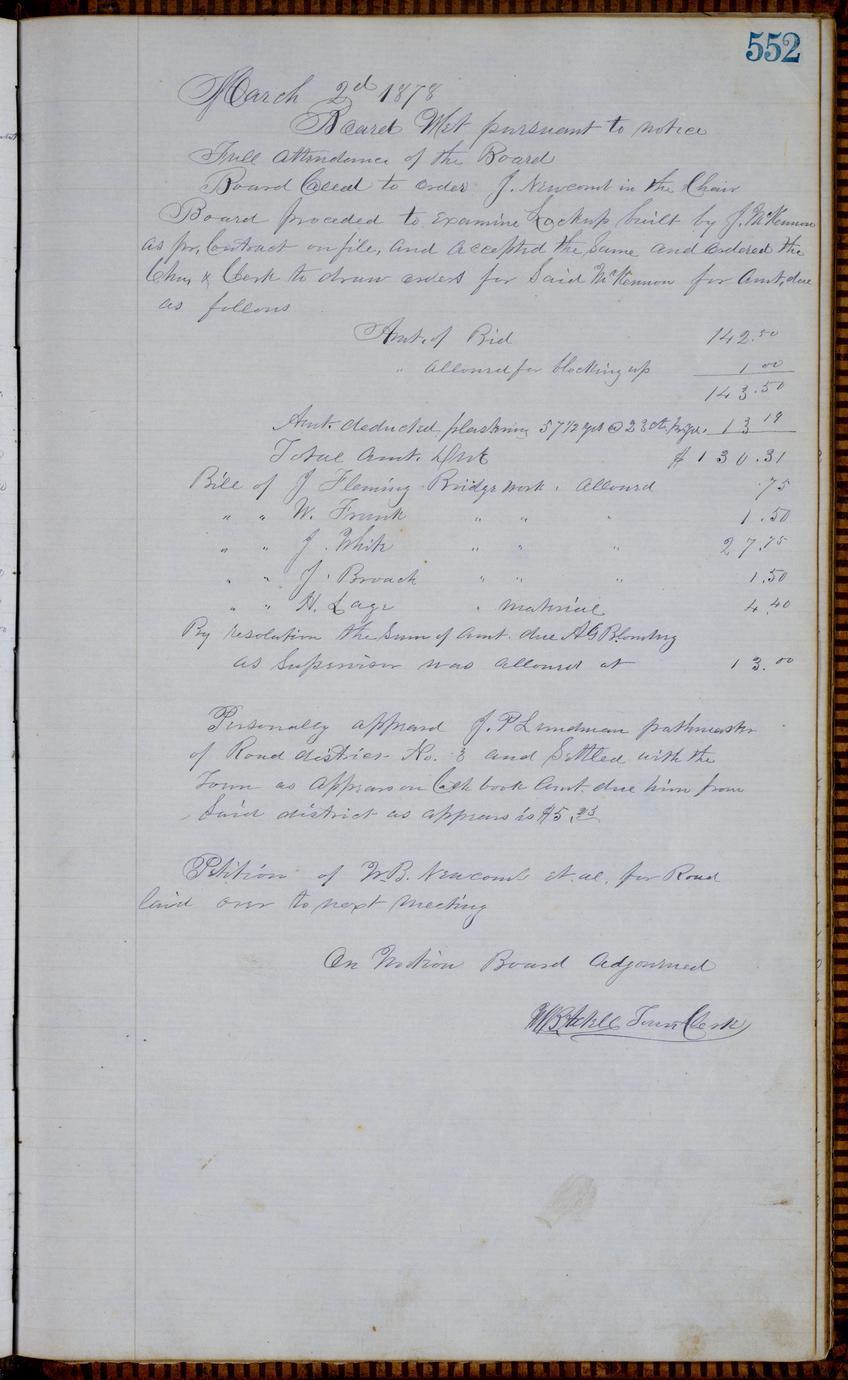 552
March 2d 1878
Board Met pursuant to notice
Full attendance of the Board
Board Called to order J. Newcomb in the Chair
Board proceded to examine Lockup built by J. McKennon
as pr, Contract on file, and accepted the same and ordered the
Chm & Clerk to draw orders for Said McKennon for Amt, due
as follows
Amt. of Bid 142.50
" allowed for blocking up 1 00
143.50
Amt. deducted plastering 57 1/2 yds @ 23 cts 13 19
Total Amt. Due $130.31
Bill of J Fleming Bridge work. allowed .75
" " W. Frank " " " 1.50
" " J. White " " " 27.75
" " J. Broach " " " 1.50
" " H. Lage " material 4.40
By resolution the Sum of Amt. due AG
as Supervisor was allowed at 13.00
Personally appeard J. P Lundman pathmaster
of Road district No. 3 and Settled with the
Town as appears on Cash book Amt due him from
Said district as appears is $5.
Petition of W.B. Newcomb et. al. for Road
laid over to next meeting
On Motion Board adjourned
Town Clerk